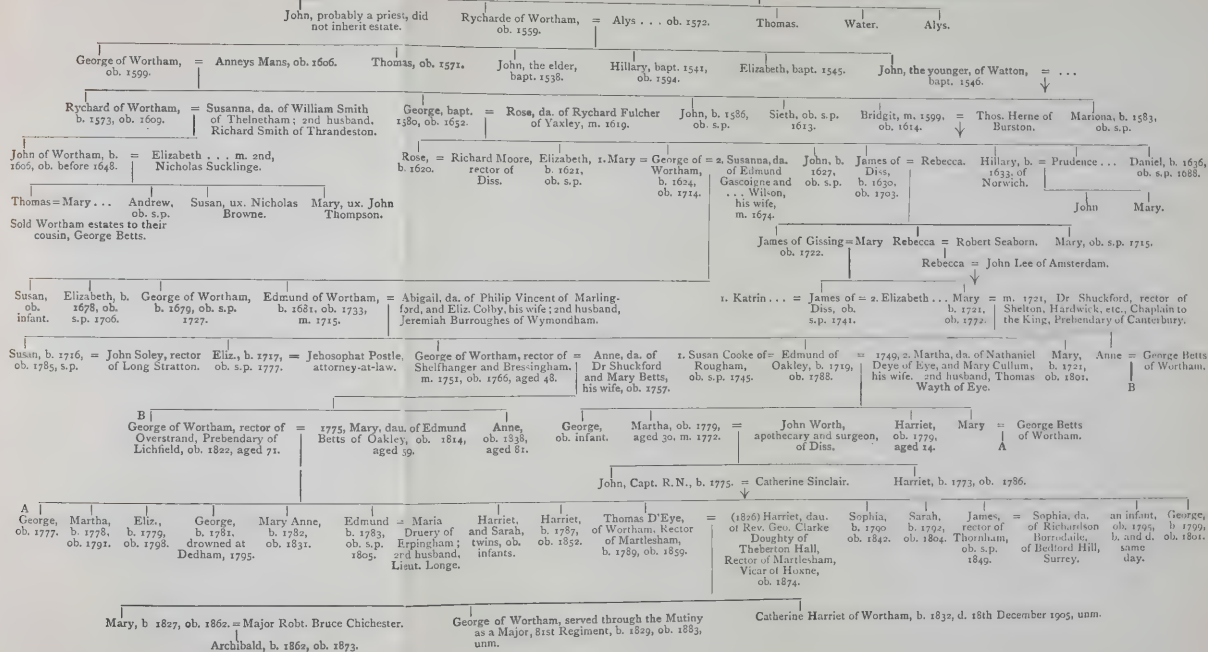 John, probably a priest, did
not inherit estate.
Rycharde of Wortham,
ob. 1559.
= Alys . . . ob. 1572.
Thomas.
Water.
Alys.
George of Wortham,
ob. 1599.
= Anneys Mans, ob. 1606.
Thomas, ob. 1571.
John, the elder,
bapt. 1538.
Hillary, bapt. 1541,
ob. 1594.
Elizabeth, bapt. 1545.
John, the younger, of Watton,
bapt. 1546.
= . . .
Rychard of Wortham,
b. 1573, ob. 1609.
= Susanna, da. of William Smith
of Thelnetham; 2nd husband,
Richard Smith of Thrandeston.
George, bapt.
1580, ob. 1652.
= Rose, da. of Rychard Fulcher
of Yaxley, m. 1619.
John, b. 1586,
ob. s.p.
Sieth, ob. s.p.
1613.
Bridgit, m. 1599,
ob. 1614.
= Thos. Herne of
Burston.
Mariona, b. 1583,
ob. s.p.
John of Wortham, b.
1606, ob. before 1648.
= Elizabeth . . . m. 2nd,
Nicholas Sucklinge.
Rose,
b. 1620.
= Richard Moore,
rector of
Diss.
Elizabeth,
b. 1621,
ob. s.p.
1. Mary = George of
Wortham,
b. 1624,
ob. 1714.
= 2. Susanna, da.
of Edmund
Gascoigne and
. . . Wilson,
his wife,
m. 1674.
John, b.
1627,
ob. s.p.
James of
Diss,
b. 1630,
ob. 1703.
= Rebecca.
Hillary, b.
1633, of
Norwich.
= Prudence . . .
Daniel, b. 1636,
ob. s.p. 1688.
Thomas = Mary . . .
Sold Wortham estates to their
cousin, George Betts.
Andrew,
ob. s.p.
Susan, ux. Nicholas
Browne.
Mary, ux. John
Thompson.
John
Mary.
James of Gissing = Mary
ob. 1722.
Rebecca = Robert Seaborn.
Mary, ob. s.p. 1715.
Rebecca = John Lee of Amsterdam.
Susan,
ob.
infant.
Elizabeth, b.
1678, ob.
s.p. 1706.
George of Wortham,
b. 1679, ob. s.p.
1727.
Edmund of Wortham,
b. 1681, ob. 1733,
m. 1715.
= Abigail, da. of Philip Vincent of Marling-
ford, and Eliz. Colby, his wife; 2nd husband,
Jeremiah Burroughes of Wymondham.
1. Katrin . . . = James of
Diss, ob.
s.p. 1741.
= 2. Elizabeth . . .
Mary
b. 1721,
ob. 1772.
= m. 1721, Dr Shuckford, rector of
Shelton, Hardwick, etc., Chaplain to
the King, Prebendary of Canterbury.
Susan, b. 1716,
ob. 1785, s.p.
= John Soley, rector
of Long Stratton.
Eliz., b. 1717,
ob. s.p. 1777.
= Jehosophat Postle,
attorney-at-law.
George of Wortham, rector of
Shelfhanger and Bressingham.
m. 1751, ob. 1766, aged 48.
= Anne, da. of
Dr Shuckford
and Mary Betts,
his wife, ob. 1757.
1. Susan Cooke of
Rougham,
ob. s.p. 1745.
= Edmund of
Oakley, b. 1719,
ob. 1788.
= 1749, 2. Martha, da. of Nathaniel
Deye of Eye, and Mary Cullum,
his wife. 2nd husband, Thomas
Wayth of Eye.
Mary,
b. 1721,
ob. 1801.
Anne = George Betts
of Wortham.
B
B
George of Wortham, rector of
Overstrand, Prebendary of
Lichfield, ob. 1822, aged 71.
= 1775, Mary, dau. of Edmund
Betts of Oakley, ob. 1814,
aged 59.
Anne,
ob. 1838,
aged 81.
George,
ob. infant.
Martha, ob. 1779,
aged 30, m. 1772.
= John Worth,
apothecary and surgeon,
of Diss.
Harriet,
ob. 1779,
aged 14.
Mary = George Betts
of Wortham.
A
John, Capt. R.N., b. 1775. = Catherine Sinclair.
Harriet, b. 1773, ob. 1786.
A
George,
ob. 1777.
Martha,
b. 1778,
ob. 1791.
Eliz.,
b. 1779,
ob. 1798.
George,
b. 1781.
drowned at
Dedham, 1795.
Mary Anne,
b. 1782,
ob. 1831.
Edmund
b. 1783,
ob. s.p.
1805.
= Maria
Druery of
Erpingham;
2nd husband,
Lieut. Longe.
Harriet
and Sarah,
twins, ob.
infants.
Harriet,
b. 1787,
ob. 1852.
Thomas D'Eye,
of Wortham. Rector
of Martlesham,
b. 1789, ob. 1859.
= (1826) Harriet, dau.
of Rev. Geo. Clarke
Doughty of
Theberton Hall,
Rector of Martlesham,
Vicar of Hoxne,
ob. 1874.
Sophia,
b. 1790
ob. 1842.
Sarah,
b. 1792,
ob. 1804.
James,
rector of
Thornham,
ob. s.p.
1849.
= Sophia, da.
of Richardson
Borrodaile,
of Bedford Hill,
Surrey.
an infant,
ob. 1795,
b. and d.
same
day.
George,
b. 1799,
ob. 1801.
Mary, b 1827, ob. 1862. = Major Robt. Bruce Chichester.
Archibald, b. 1862, ob. 1873.
George of Wortham, served through the Mutiny
as a Major, 81st Regiment, b. 1829, ob. 1883,
unm.
Catherine Harriet of Wortham, b. 1832, d. 18th December 1905, unm.